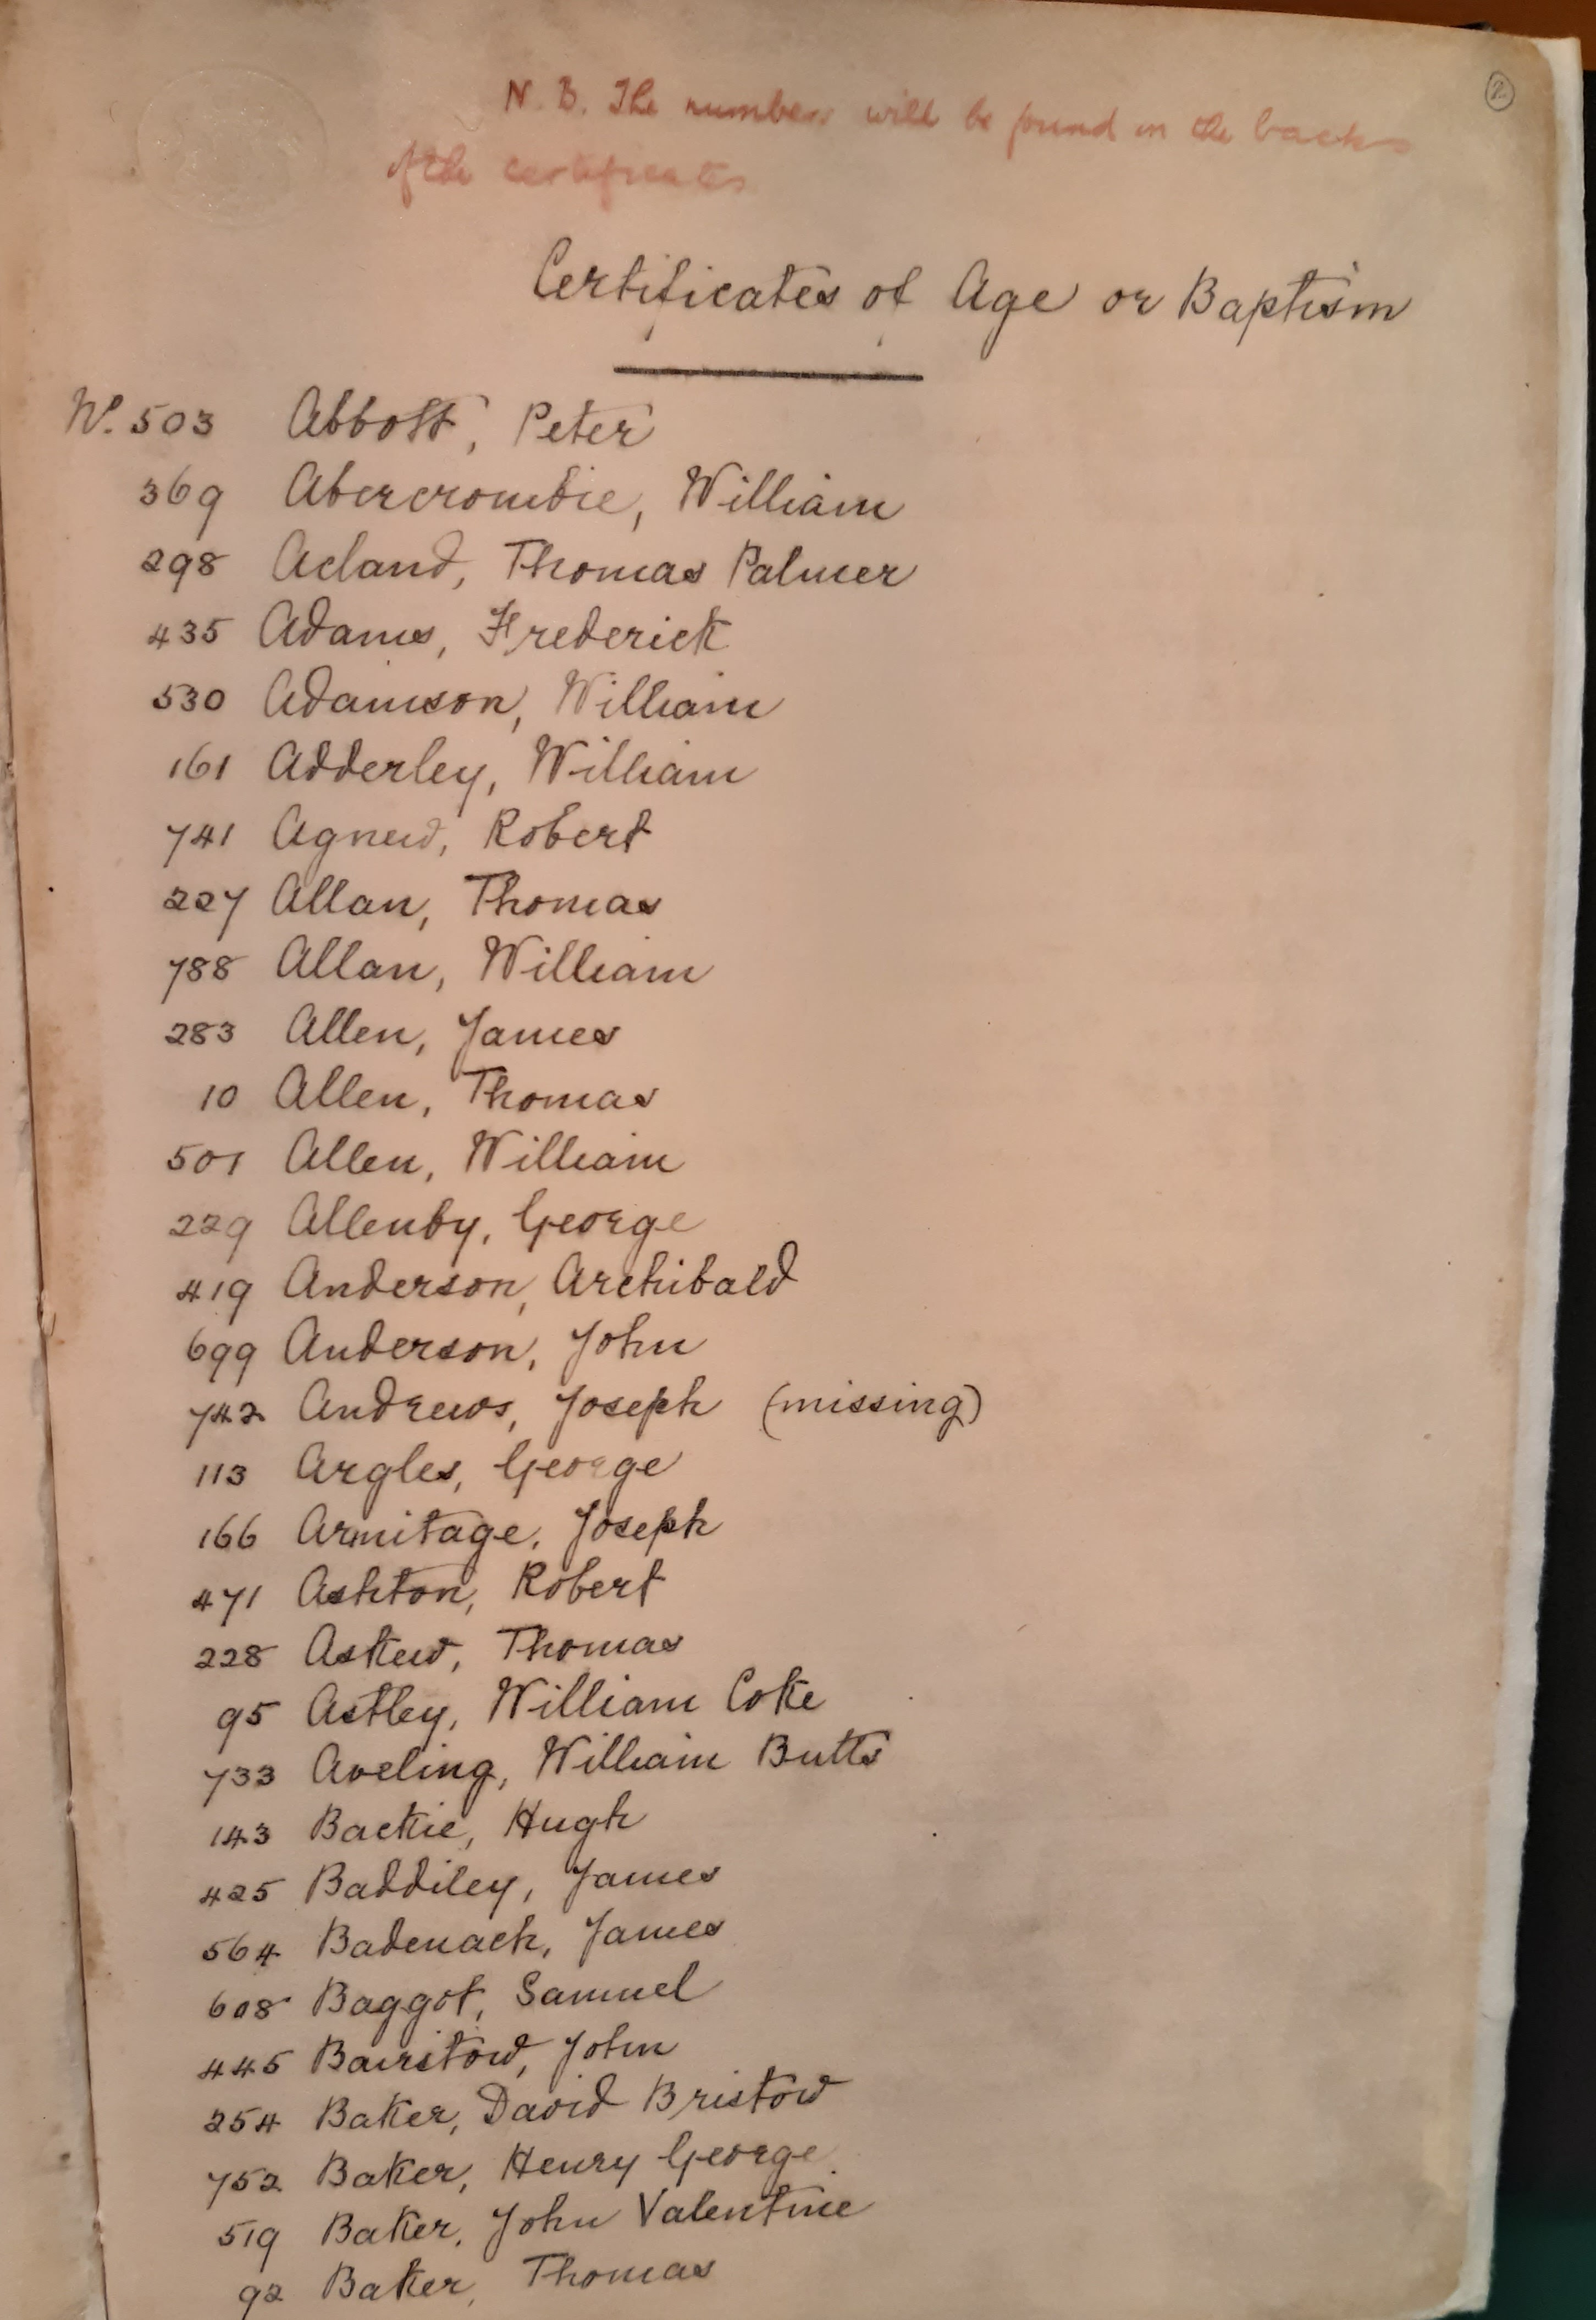 2
N. B. The numbers will be found on the backs
of the certificates
Certificates of Age or Baptism
No. 503 Abbott, Peter
369 Abercrombie, William
298 Acland, Thomas Palmer
435 Adams, Frederick
530 Adamson, William
161 Adderley, William
741 Agnew, Robert
227 Allan, Thomas
788 Allan, William
283 Allen, James
10 Allen, Thomas
501 Allen, William
229 Allenby, George
419 Anderson, Archibald
699 Anderson, John
742 Andrews, Joseph (missing)
113 Argles, George
166 Armitage, Joseph
471 Ashton, Robert
228 Askew, Thomas
95 Astley, William Coke
733 Aveling, William Butts
143 Backie, Hugh
425 Baddiley, James
564 Badenach, James
608 Baggot, Samuel
445 Bairstow, John
254 Baker, David Bristow
752 Baker, Henry George
519 Baker, John Valentine
92 Baker, Thomas